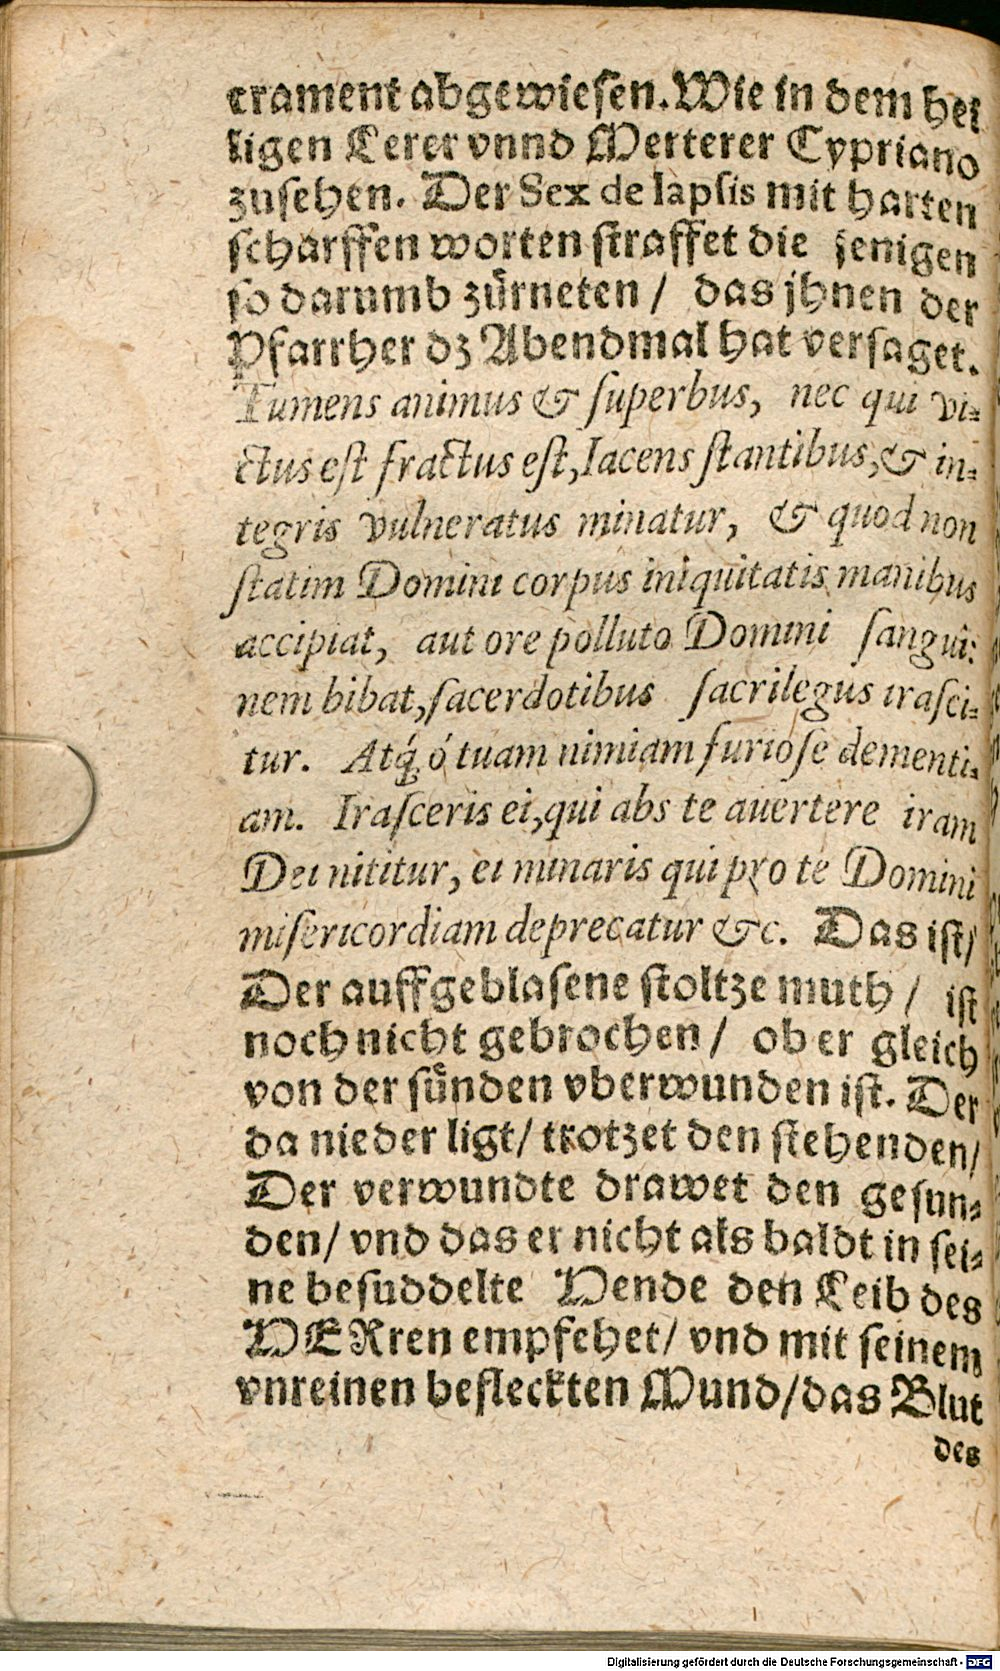 crament abgewiesen. Wie in dem hei
ligen Lerer vnnd Merterer Cypriano
zusehen. Der Sex de lapsis mit harten
scharffen worten straffet die jenigen
so darumb zürneten / das jhnen der
Pfarrher dz Abendmal hat versaget.
Tumens animus & superbus, nec qui vi-
ctus est fractus est, Iacens stantibus, & in-
tegris vulneratus minatur, & quod non
statim Domini corpus iniquitatis manibus
accipiat, aut ore polluto Domini sangui-
nem bibat, sacerdotibus sacrilegus irasci-
tur. Atq́; ó tuam nimiam furiose dementi-
am. Irasceris ei, qui abs te auertere iram
Dei nititur, ei minaris qui pro te Domini
misericordiam deprecatur &c. Das ist/
Der auffgeblasene stoltze muth / ist
noch nicht gebrochen / ob er gleich
von der sünden vberwunden ist. Der
da nieder ligt / trotzet den stehenden /
Der verwundte drawet den gesun-
den / vnd das er nicht als baldt in sei-
ne besuddelte Hende den Leib des
HERren empfehet / vnd mit seinem
vnreinen befleckten Mund / das Blut
des
Digitalisierung gefördert durch die Deutsche Forschungsgemeinschaft - DFG